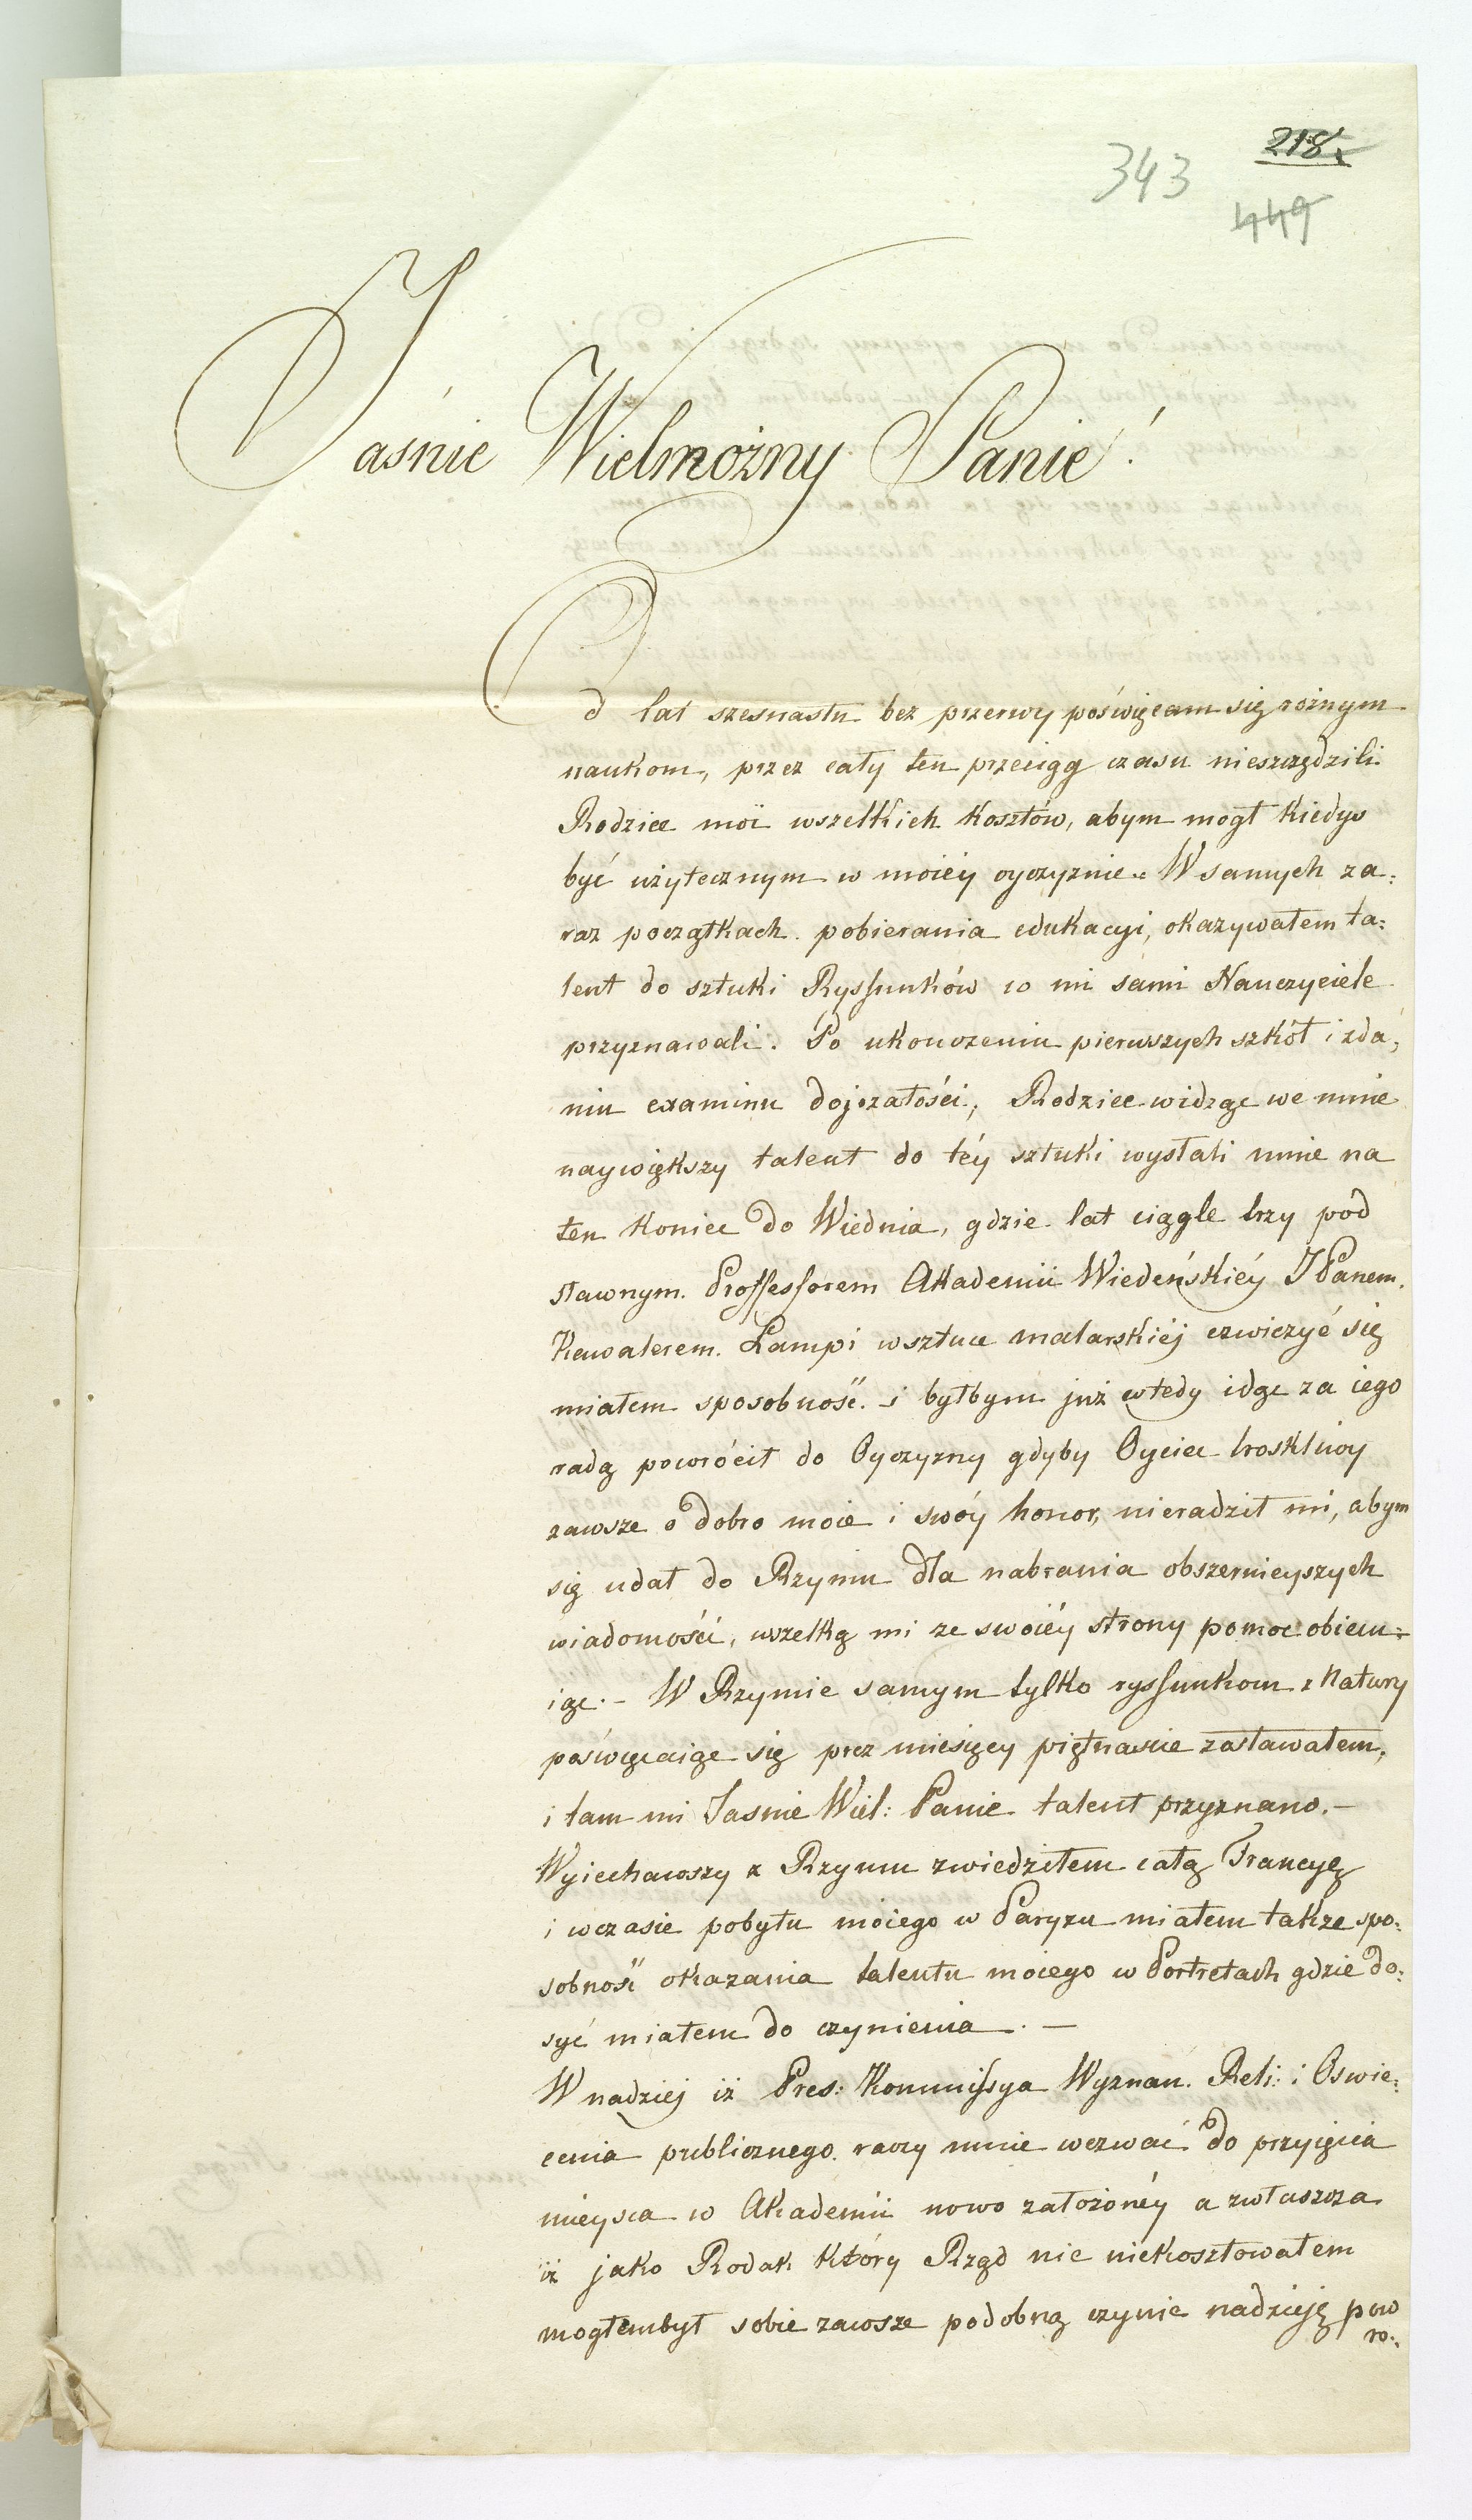 218
343
449
Jaśnie Wielmożny Panie!
Od lat szesnastu bez przerwy poświęcam się rożnym
naukom, przez cały ten przeciąg czasu nieszczędzili
Rodzice moi wszelkich kosztów, abym mogł kiedyś
być użytecznym w moiéy oyczyznie. W samych za:
raz początkach pobierania edukacyi, okazywałem ta:
lent do sztuki Ryssunków co mi sami Nauczyciele
przyznawali. Po ukonczeniu pierwszych szkół i zda:
niu examinu dojrzałości, Rodzice widząc we mnie
naywiększy talent do téy sztuki wysłali mnie na
ten koniec do Wiednia, gdzie lat ciągle trzy pod
sławnym Proffessorem Akademii Wiedeńskiéy JPanem
Kawalerem Lampi w sztuce malarskiéj czwiczyć się
miałem sposobność i byłbym już wtedy idąc za iego
radą powrócił do Oyczyzny gdyby Oyciec troskliwy
zawsze o dobro moie i swóy honor, nieradził mi, abym
się udał do Rzymu dla nabrania obszernieyszych
wiadomości, wszelką mi ze swoiéy strony pomoc obiecu:
iąc. – W Rzymie samym tylko ryssunkom z Natury
poświęcaiąc się prez miesięcy piętnaście zostawałem,
i tam mi Jasnie Wiel: Panie talent przyznano. –
Wyiechawszy z Rzymu zwiedziłem całą Francyę
i wczasie pobytu moiego w Paryzu miałem takze spo:
sobność okazania talentu moiego w Portretach gdzie do:
syć miałem do czynienia. –
W nadziej iż Pres: Kommissya Wyznan. Reli: i Oswie:
cenia publicznego raczy mnie wezwać do przyięcia
mieysca w Akademii nowo założonéy a zwłaszcza
iż jako Rodak który Rząd nic niekosztowałem
mogłembył sobie zawsze podobną czynic nadzieję pow
ro: